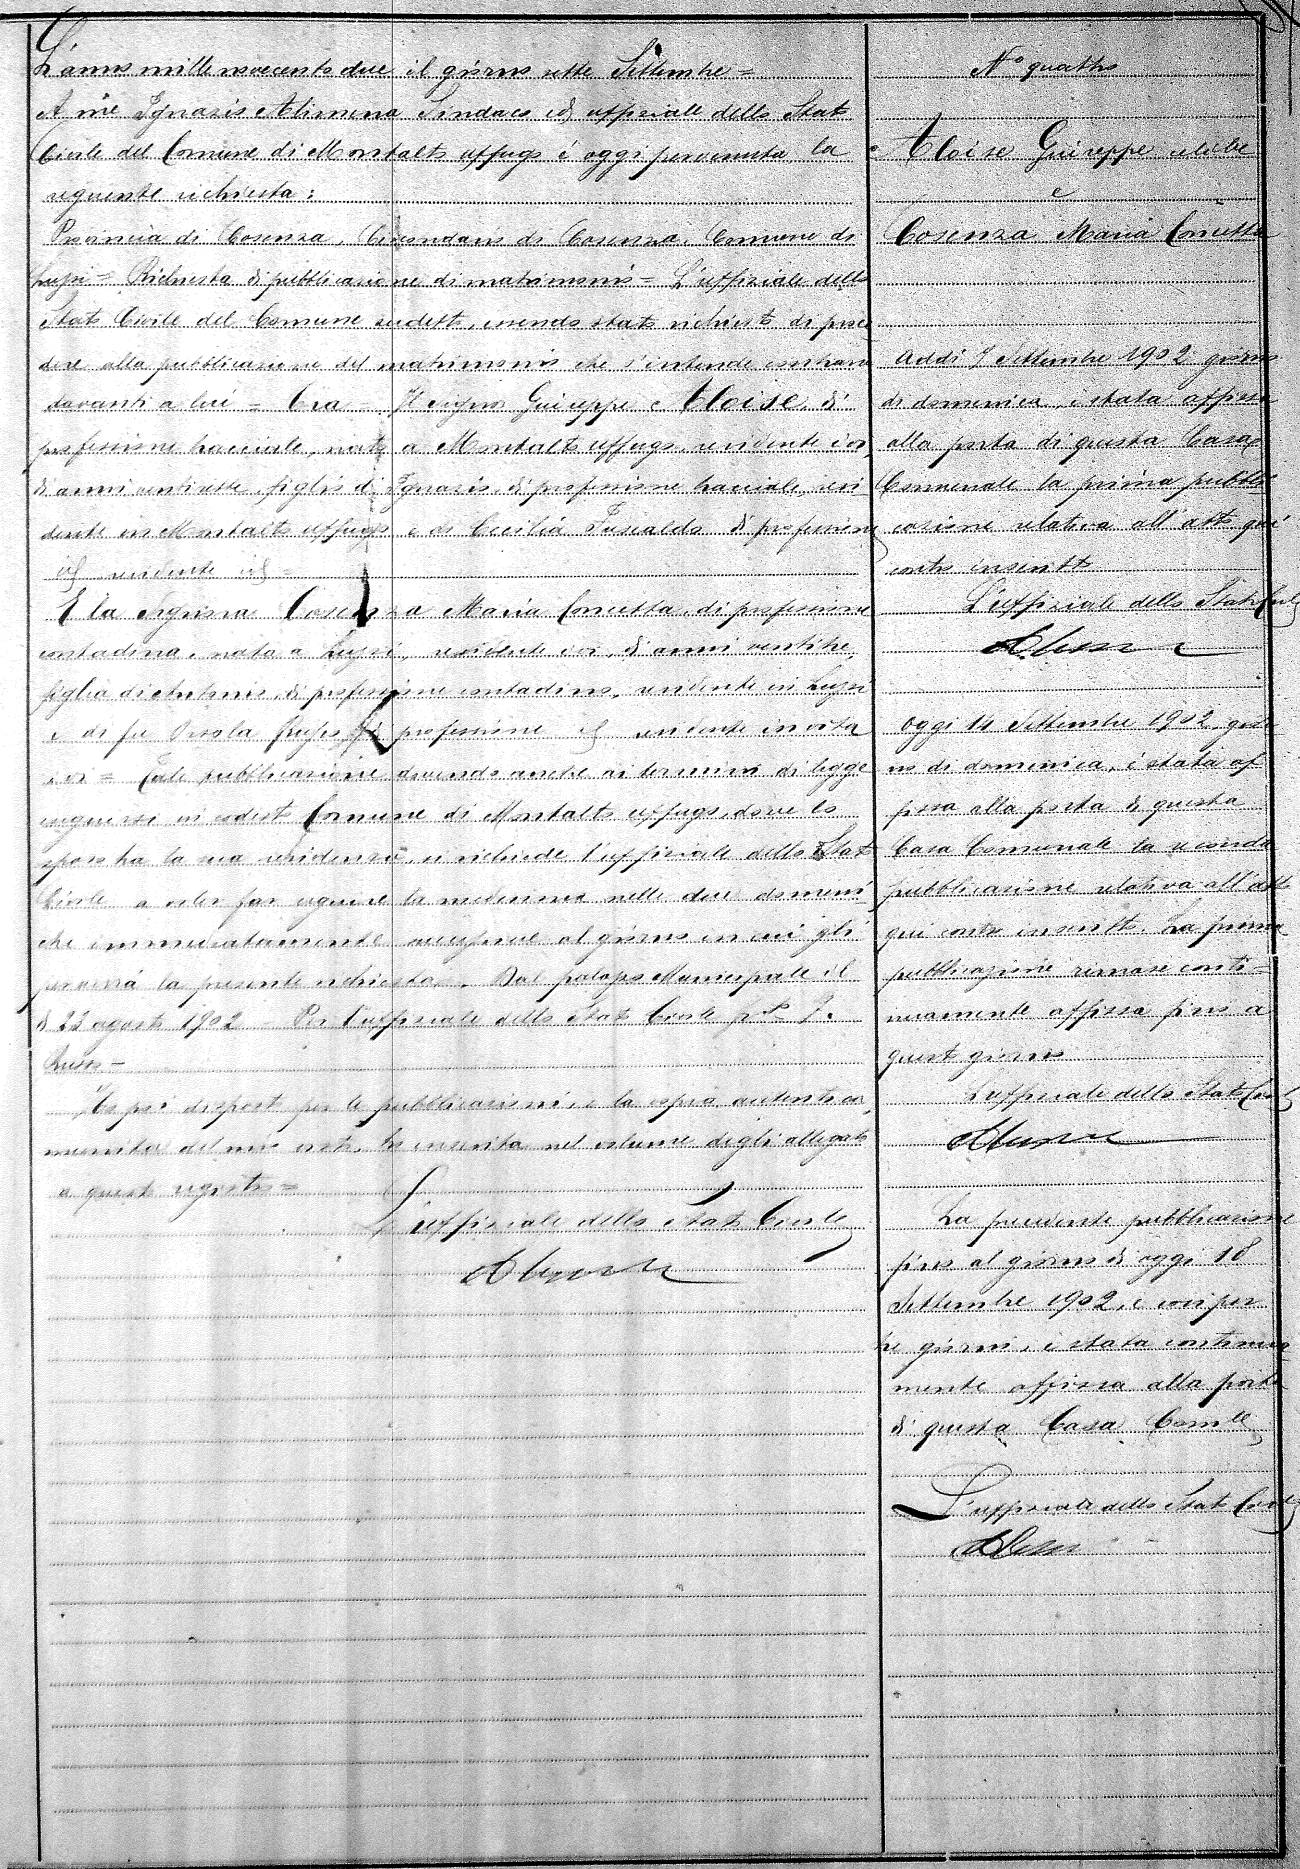 L'anno mille novecento due il giorno sette Settembre =
A me Ignazio Alimena Sindaco ed uffiziale dello Stato
Civile del Comune di Montalto Uffugo è oggi pervenuta la
seguente richiesta:
Provincia di Cosenza, Circondario di Cosenza, Comune di
Luzzi = Richiesta di pubblicazione di matrimonio = L'uffiziale dello
Stato Civile del Comune sudetto, essendo stato richiesto di proce
dere alla pubblicazione del matrimonio che s'intende contrarre
davanti a lui = Tra = Il signor Giuseppe Aloise, di
professione bracciale, nato a Montalto Uffugo, residente ivi,
di anni ventisette, figlio di Ignazio, di professione bracciale, resi
dente in Montalto Uffugo e di Cecilia Fuscaldo di professione
id residente id =
E la signora Cosenza Maria Concetta, di professione
contadina, nata a Luzzi, residente ivi, di anni ventitre,
figlia di Antonio, di professione contadino, residente in Luzzi
e di fu Orsola di professione id residente in vita
ivi = Tale pubblicazione dovendo anche ai termini di legge
eseguirsi in codesto Comune di Montalto Uffugo, dove lo
sposo ha la sua residenza, si richiede l'uffiziale dello Stato
Civile a voler far eseguire la medesima nelle due domeni
che immediatamente successive al giorno in cui gli
perverrà la presente richiesta. Dal palazzo Municipale il
di 23 agosto 1902 = Per l'uffiziale dello Stato Civile
Russo =
Ho poi disposto per le pubblicazioni, e la copia autentica
munita del mio visto, ho inserita nel volume degli allegati
a questo registro =
L'uffiziale dello Stato Civile
Alimena
N° quattro
Aloise Giuseppe celibe
e
Cosenza Maria Concetta
Addì 7 Settembre 1902 giorno
di domenica, è stata affissa
alla porta di questa Casa
Comunale la prima pubbli
cazione relativa all'atto qui
contro inscritto
L'uffiziale dello Stato Civile
Alimena
Oggi 14 Settembre 1902 gior
no di domenica, è stata af
fissa alla porta di questa
Casa Comunale la seconda
pubblicazione relativa all'atto
qui contro inscritto. La prima
pubblicazione rimase conti=
nuamente affissa fino a
questo giorno
L'uffiziale dello Stato Civile
Alimena
La precedente pubblicazione
fino al giorno di oggi 18
Settembre 1902, e così per
tre giorni, è stata continua
mente affissa alla porta
di questa Casa Comle
L'uffiziale dello Stato Civile
Alimena